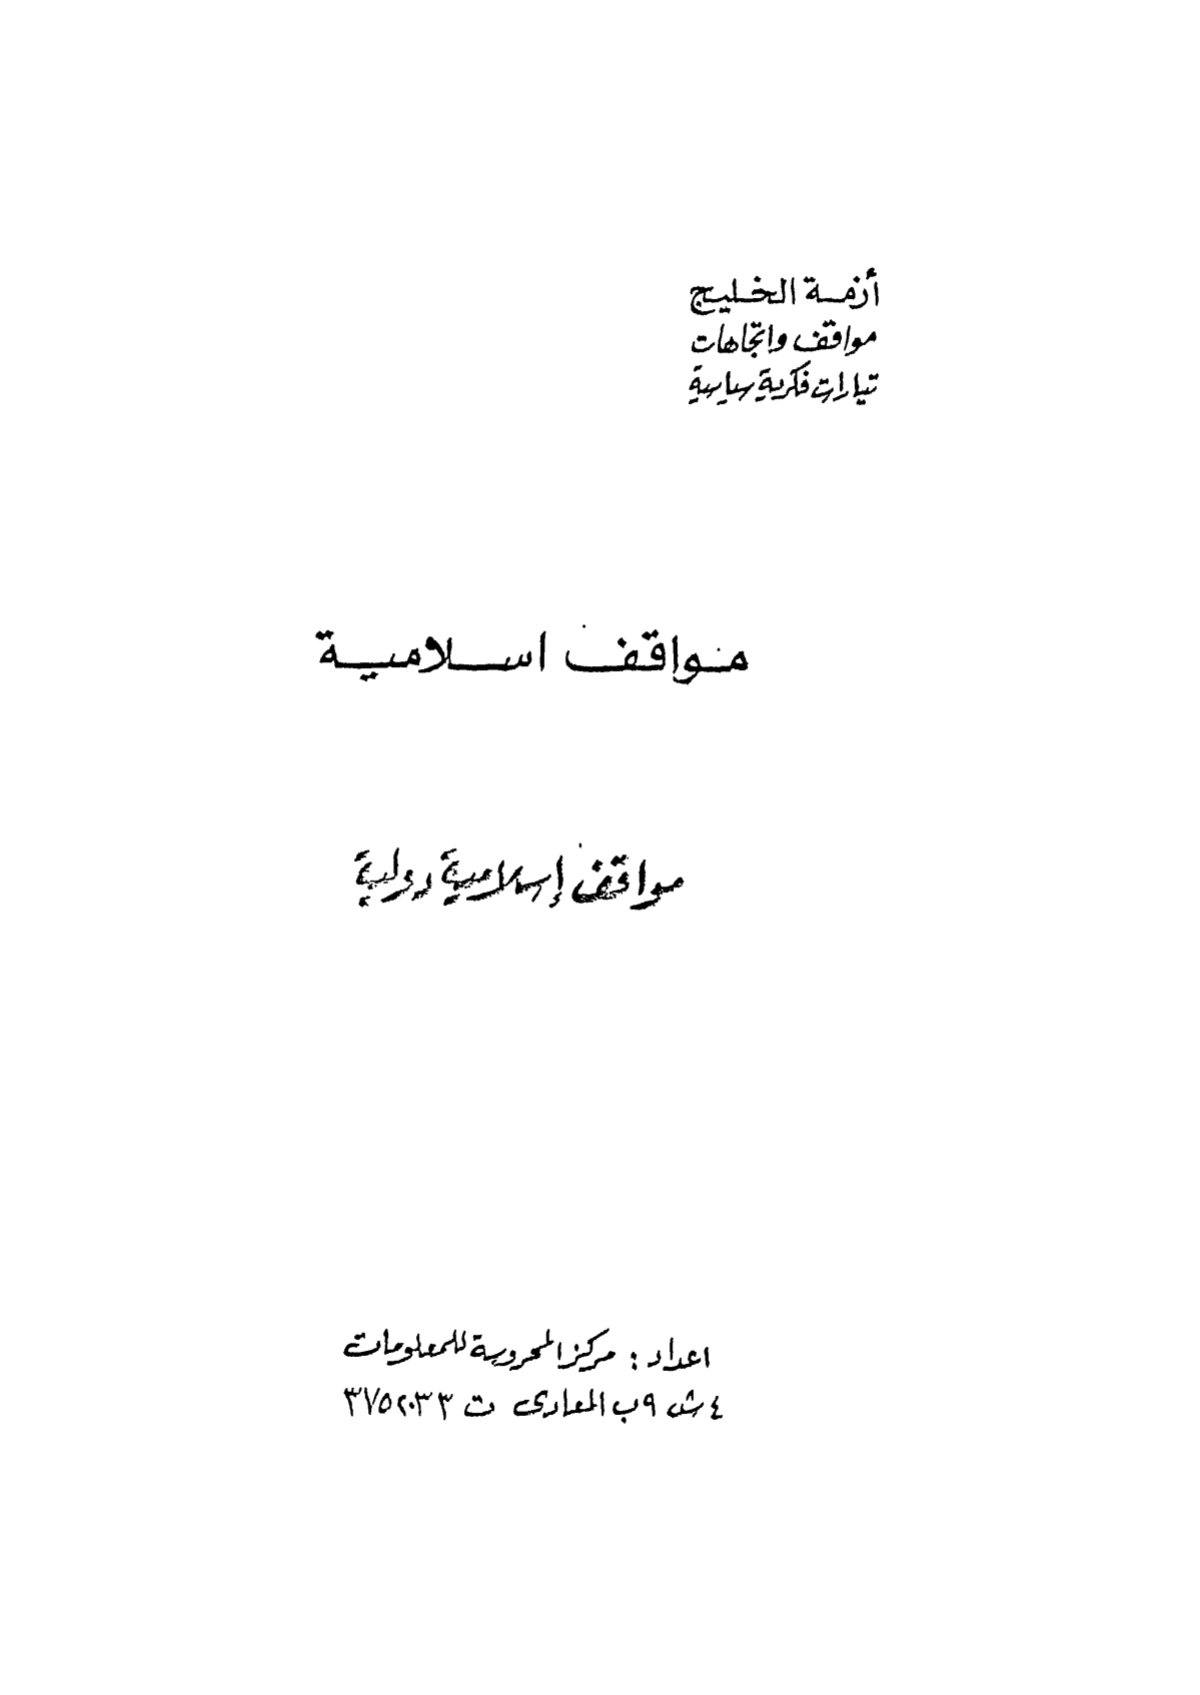 أزمة الخليج
مواقف واتجاهات
تيارات فكرية سياسية
مواقف اسلامية
مواقف إسلامية دولية
اعداد : مركز المحروسة للمعلومات
٤ ش ٩ ب المعادى ت ٣٧٥٢٠٣٣